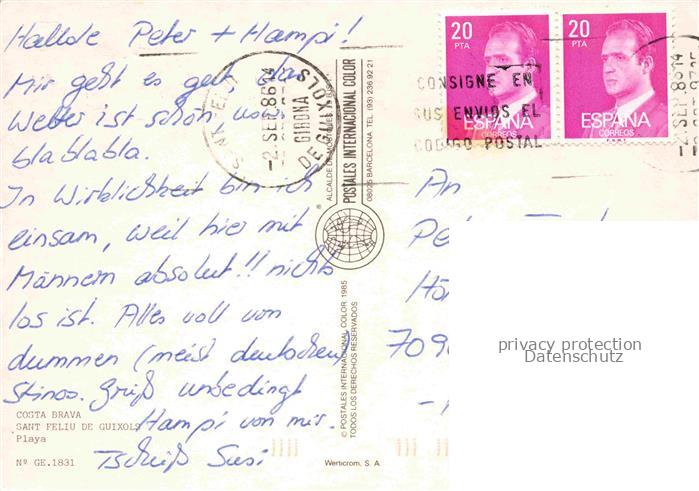 Hallöle Peter + Hampi!
Mir geht es gut, das
Wetter ist schön und
blablabla.
In Wirklichkeit bin ich
einsam, weil hier mit
Männern absolut!! nichts
los ist. Alles voll von
dummen (meist deutschen)
Stinos. Grüß unbedingt
Hampi von mir.
Tschüß Susi
COSTA BRAVA
SANT FELIU DE GUIXOLS
Playa
Nº GE.1831
2. SEP. 86 14
GIRONA
DE GUIXOLS
POSTALES INTERNACIONAL COLOR
08025 BARCELONA TEL. (93) 236 92 21
© POSTALES INTERNACIONAL COLOR 1985
TODOS LOS DERECHOS RESERVADOS
Werticrom, S. A.
20
PTA
ESPAÑA
CORREOS
20
PTA
ESPAÑA
CORREOS
CONSIGNE EN
SUS ENVIOS EL
CODIGO POSTAL
2. SEP. 86 14
An
709
privacy protection
Datenschutz